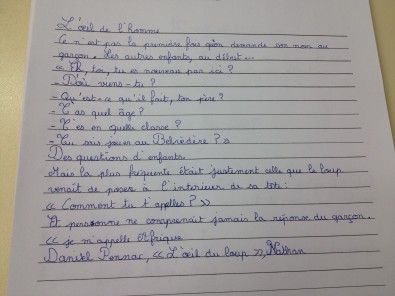 L'œil de l'homme
Ce n'est pas la première fois qu'on demande son nom au
garçon. Les autres enfants, au début...
« Eh, toi, tu es nouveau par ici ?
- D'où viens-tu ?
- Qu'est-ce qu'il fait, ton père ?
- T'as quel âge ?
- T'es en quelle classe ?
- Tu sais jouer au Belvédère ? »
Des questions d'enfants.
Mais la plus fréquente était justement celle que le loup
venait de poser à l'intérieur de sa tête :
« Comment tu t'appelles ? »
Et personne ne comprenait jamais la réponse du garçon.
« je m'appelle Afrique
Daniel Pennac, « L'œil du loup », Nathan